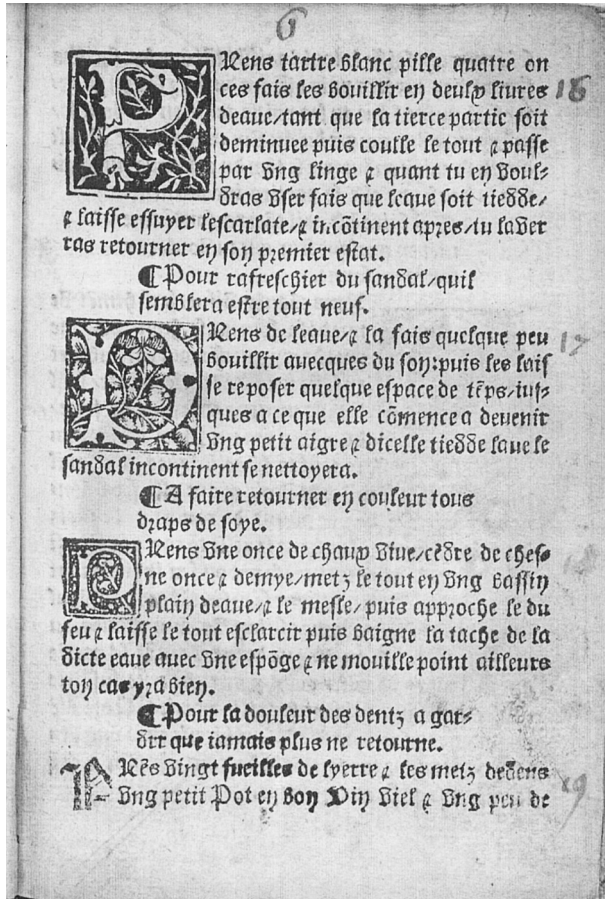 6
PRens tartre blanc pille quatre on
ces fais les bouillir en deulx livres 16
deaue/tant que la tierce partie soit
deminuee puis coulle le tout ⁊ passe
par vng linge ⁊ quant tu en voul⸗
dras vser fais que leaue soit tiedde/
⁊ laisse essuyer lescarlate/⁊ incõtinent apres/tu laver
ras retourner en son premier estat.
¶ Pour rafreschier du sandal/quil
semblera estre tout neuf.
PRens de leaue/⁊ la fais quelque peu 17
bouillir auecques du son:puis les lais
se reposer quelque espace de tẽps/ius⸗
ques a ce que elle cõmence a deuenir
vng petit aigre ⁊ dicelle tiedde laue le
sandal incontinent se nettoyera.
¶ A faire retourner en couleur tous
draps de soye.
PRens vne once de chaux viue/cẽdre de ches⸗ 18
ne once ⁊ demye/metz le tout en vng bassin
plain deaue/⁊ le mesle/puis approche le du
feu ⁊ laisse le tout esclarcir puis baigne la tache de la
dicte eaue avec vne espõge ⁊ ne mouille point ailleurs
ton cas yra bien.
¶ Pour la douleur des dentz a gar⸗
der que iamais plus ne retourne.
PRẽs vingt fueilles de lyerre ⁊ les metz dedens 19
vng petit Pot en bon Vin viel ⁊ vng peu de